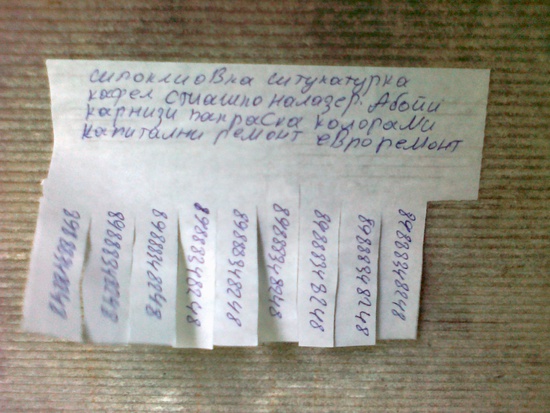 сипоклиовка ситукатурка
кафел стиашко налазер. Абойи
карнизи пакраска колорами
капитални ремонт евроремонт
89888348248
89888348248
89888348248
89888348248
89888348248
89888348248
89888348248
89888348248
89888348248